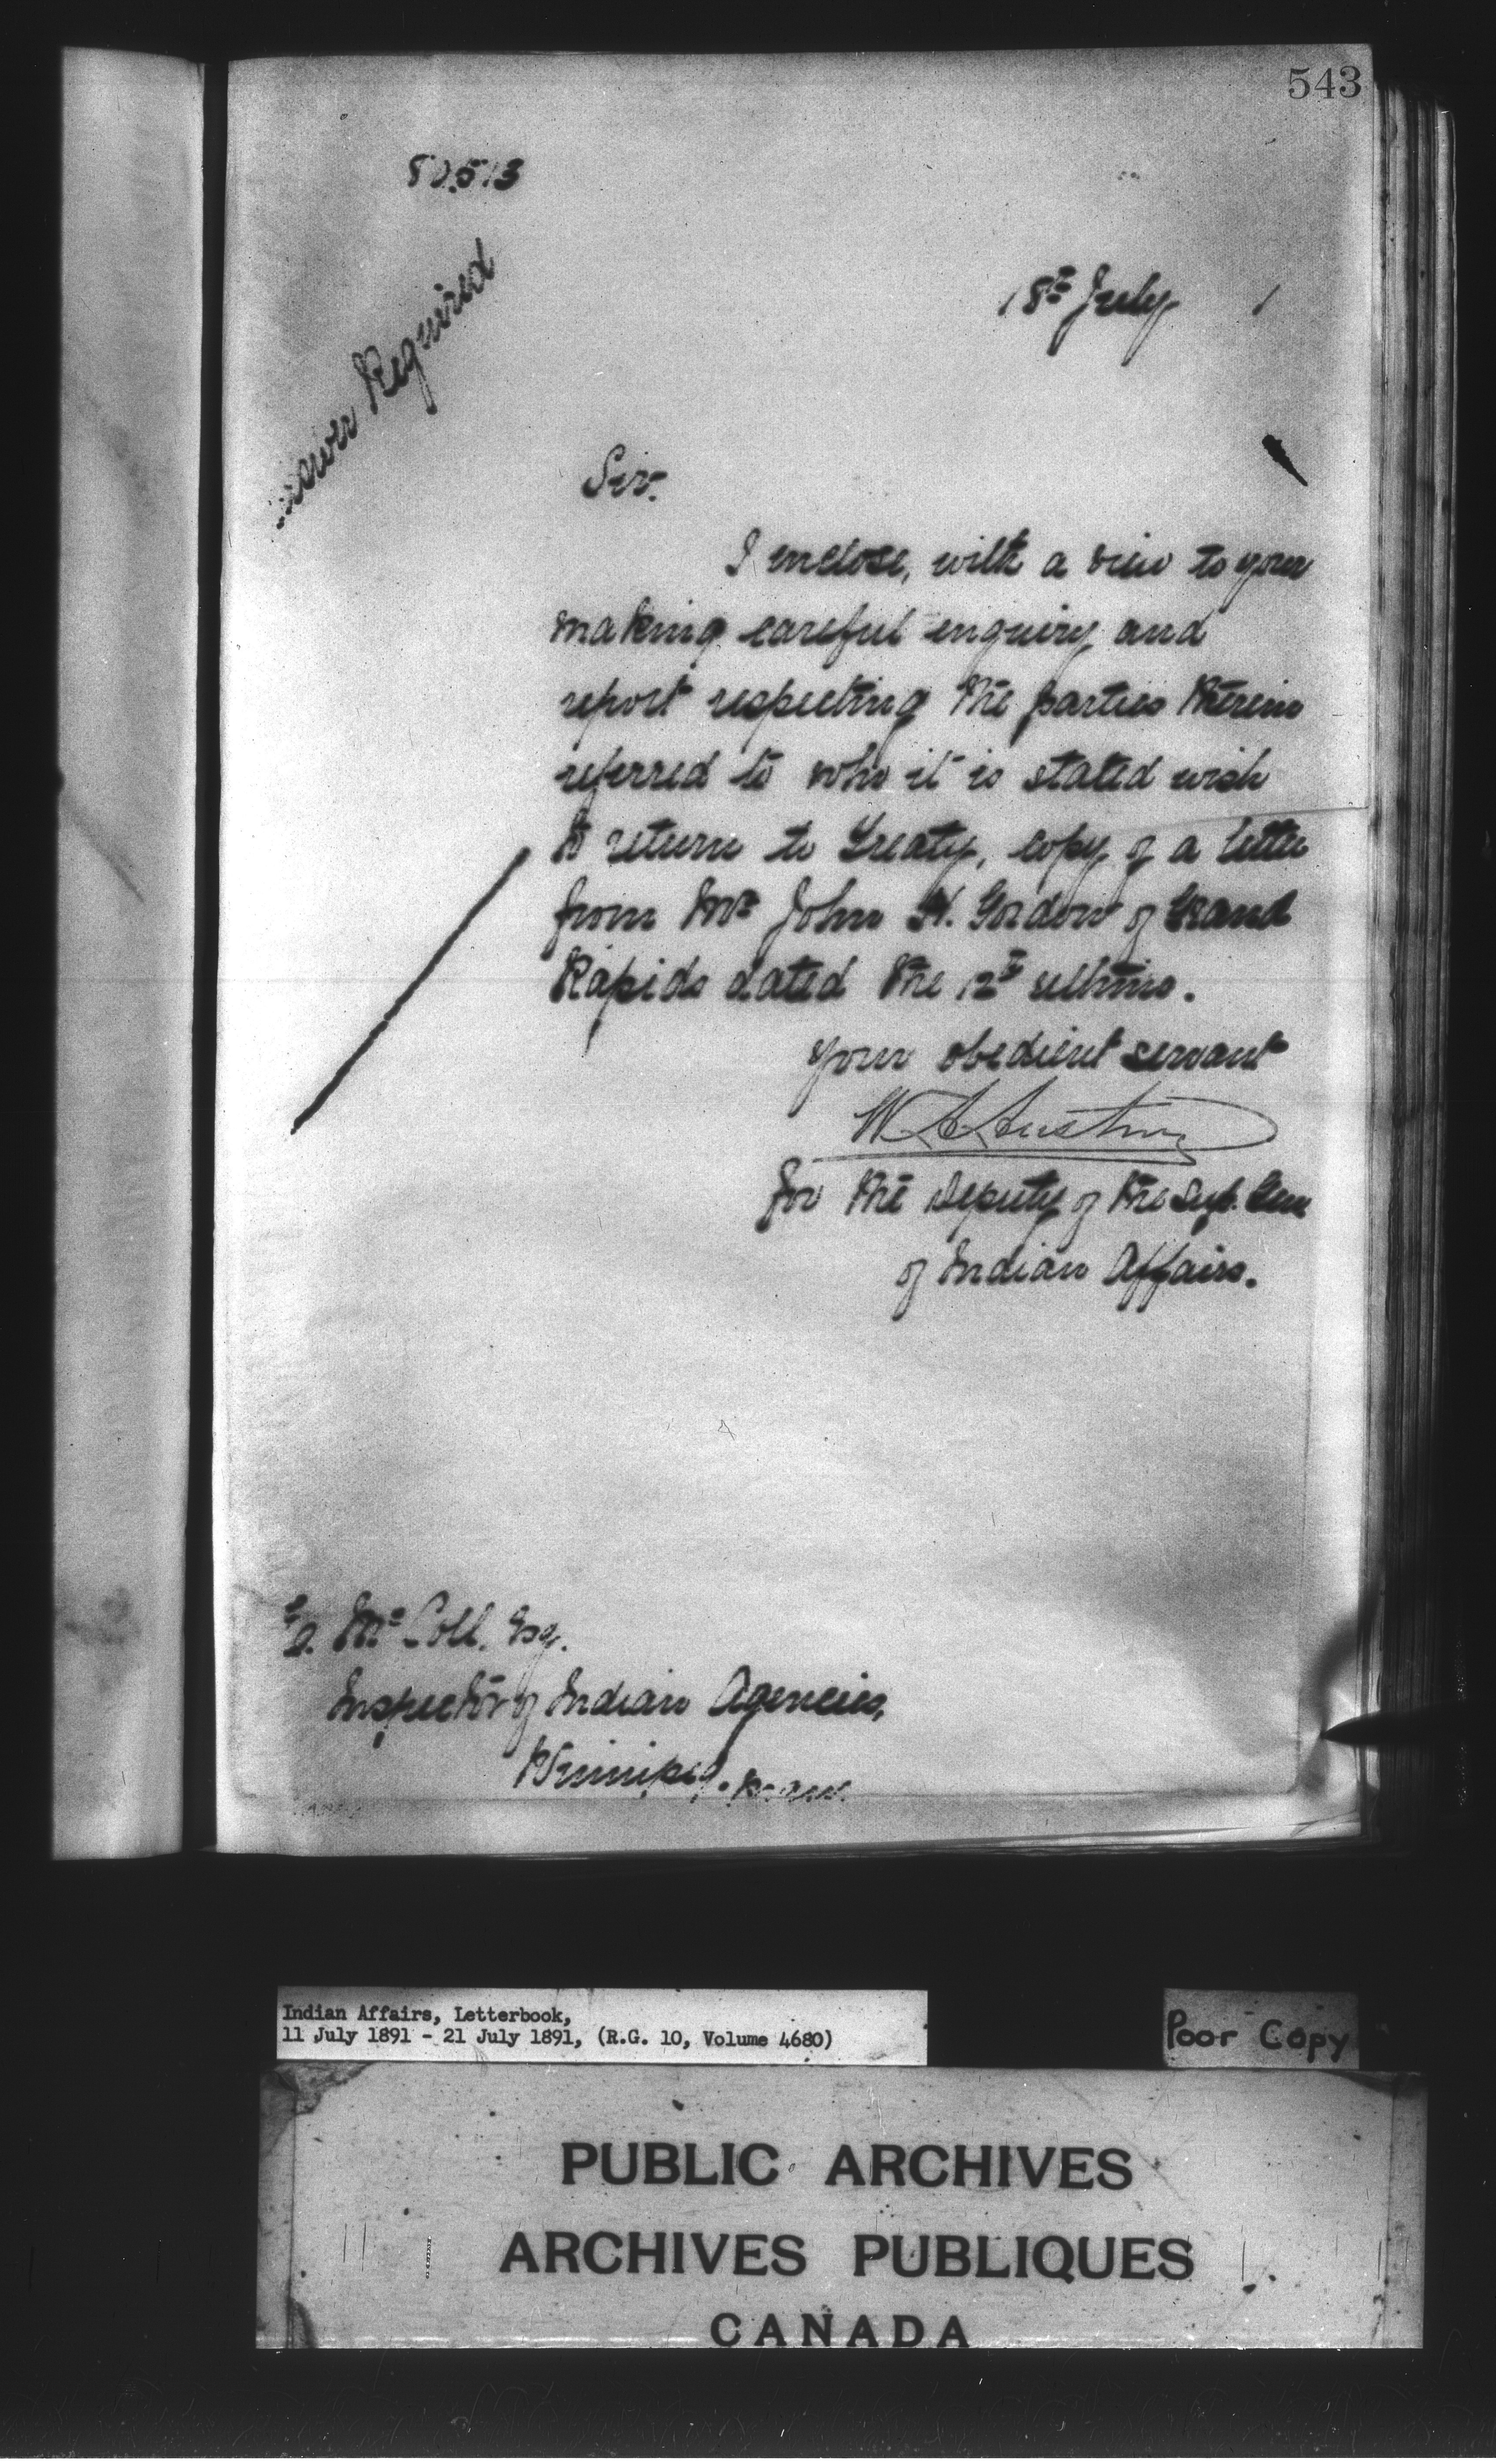 543
Required
18th July 1
Sir.
I enclose, with a view to your
making careful enquiry and
report respecting the parties therein
referred to who it is stated wish
to return to Treaty, copy of a letter
from Mr John H. Gordon of Grand
Rapids dated the 12th ultimo.
Your obedient servant
W A Austin
for the Deputy of the Supt. Gen
of Indian Affairs.
E. McColl, Esq.
Inspector of Indian Agencies,
Winnipeg. Man.
Indian Affairs, Letterbook,
11 July 1891 - 21 July 1891, (R.G. 10, Volume 4680)
Poor Copy
PUBLIC ARCHIVES
ARCHIVES PUBLIQUES
CANADA